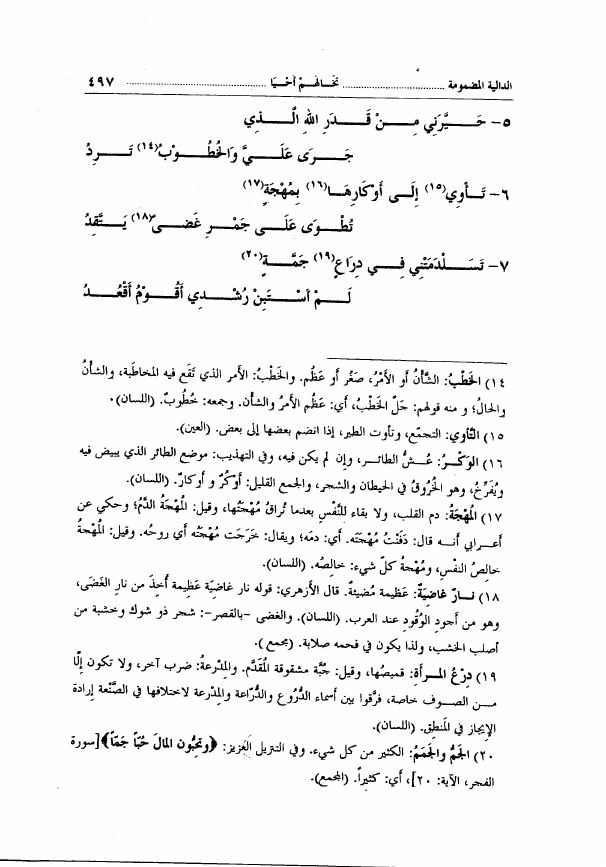 الدالية المضمومة ........................ نخالهم أحيا ........................ ٤٩٧
٥- حَـــيَّرَنِي مِـــنْ قَـــدَرِ اللهِ الَّـــذِي
جَـــرَى عَلَـــيَّ وَالخُطُـــوْبُ(١٤) تَـــرِدُ
٦- تَـــأوِي(١٥) إِلَـــى أَوْكَارِهَـــا(١٦) بِمُهْجَةٍ(١٧)
تُطْـوَى عَلَـــى جَمْـــرِ غَضـــى(١٨) يَـــتَّقِدُ
٧- تَسَـــلْدَمَتْنِي فِـــي دِرَاعٍ(١٩) جَمَّـــةٍ(٢٠)
لَـــمْ أسْـــتَبِنْ رُشْـــدِي أقُـــوْمُ أقْعُـــدُ
١٤) الخَطْبُ: الشَّأنُ أو الأمْرُ، صَغُر أو عَظُم. والخَطْبُ: الأمر الذي تَقَع فيه المخاطَبة، والشأن
والحالُ؛ و منه قولهم: جَلَّ الخَطْبُ، أي: عَظُم الأمرُ والشأن. وجمعه: خُطُوبٌ. (اللسان).
١٥) التَّأوي: التجمّع، وتأوت الطير، إذا انضم بعضها إلى بعض. (العين).
١٦) الوَكْـــرُ: عُـــشُّ الطائـــر، وإن لم يكن فيه، وفي التهذيب: موضع الطائر الذي يبيض فيه
ويُفَرِّخُ، وهو الخُرُوقُ في الحيطان والشجر، والجمع القليل: أوْكُرٌ و أوكارٌ. (اللسان).
١٧) المُهْجَةُ: دم القلب، ولا بقاء للنَّفْسِ بعدما تُراقُ مُهْجَتُها، وقيل: المُهْجَةُ الدَّمُ؛ وحكي عن
أعـــرابي أنـــه قال: دَفَنْتُ مُهْجَتَه. أي: دمَه؛ ويقال: خَرَجَت مُهْجَتُه أي روحُه. وقيل: المُهْجَةُ
خالِصُ النفْسِ، ومُهْجةُ كلّ شيء: خالصُه. (اللسان).
١٨) نـــارٌ غاضِيَةٌ: عظيمة مُضيئةٌ. قال الأزهري: قوله نار غاضِيَة عَظيمة أُخِذَ من نارِ الغَضَى،
وهو من أجودِ الوُقُودِ عند العرب. (اللسان). والغضى -بالقصر-: شجر ذو شوك وخشبة من
أصلب الخشب، ولذا يكون في فحمه صلابة. (مجمع).
١٩) دِرْعُ المـــرأةِ: قميصُها، وقيل: جُبَّة مشقوقة المُقَدَّمِ. والمِدْرعةُ: ضرب آخر، ولا تكون إلّا
مـــن الصـــوف خاصة، فرَّقوا بين أسماء الدُّرُوع والدُّرّاعة والمِدْرعة لاختلافها في الصَّنْعة إرادة
الإيجاز في المَنطِق. (اللسان).
٢٠) الجَمُّ والجَمَمُ: الكثير من كل شيء. وفي التنزيل العزيز: ﴿وتُحِبُّون المالَ حُبّاً جَمّاً﴾[سورة
الفجر، الآية: ٢٠]، أي: كثيراً. (المجمع).